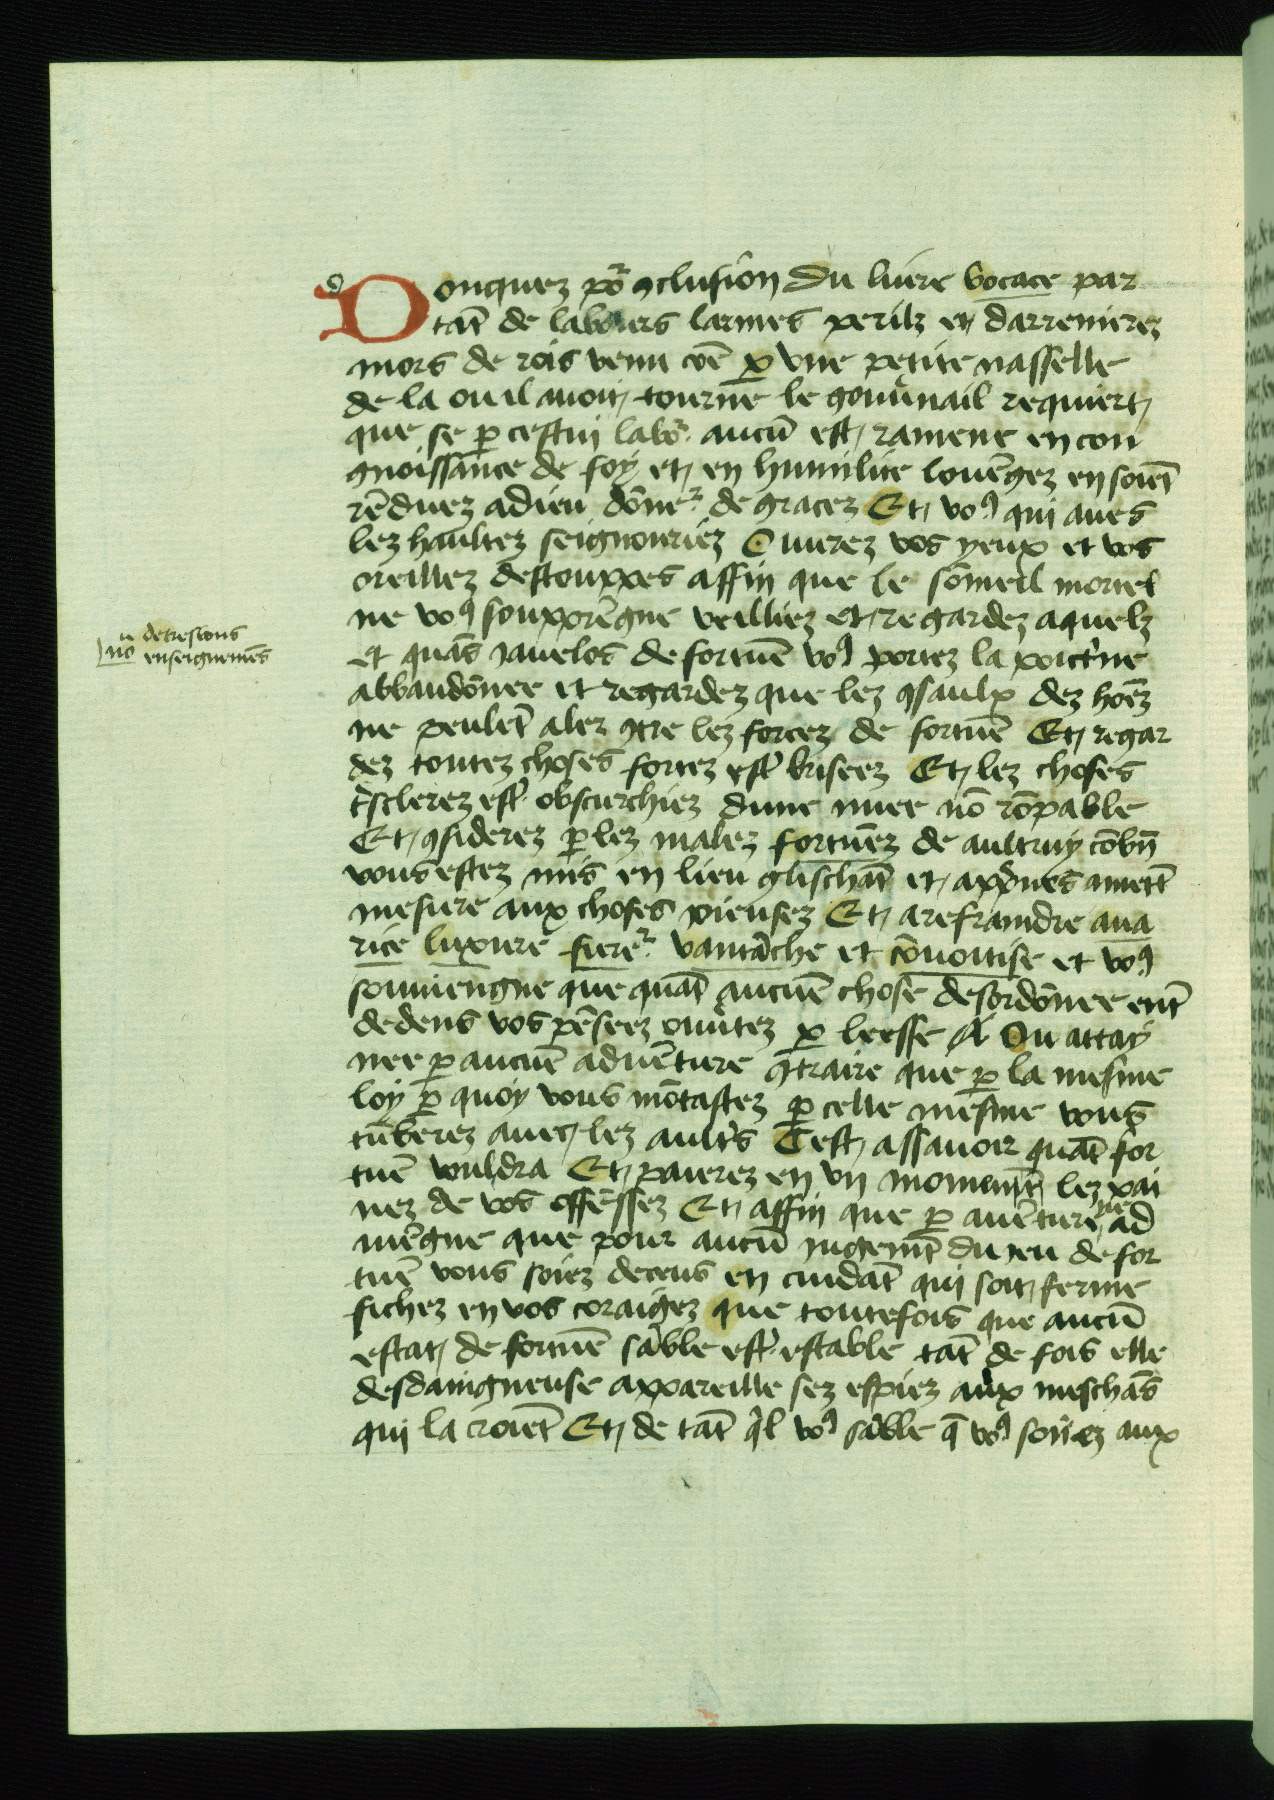 Doncquez po᷑ ꝯclusion du liure bocace par
tāt de labours larmes perilz et darrenierez
mors de rois venu cōe ꝑ vne petite nasselle
de la ou il auoit tourne le gouu̾nail requiert
que se ꝑ cestui labo᷑ aucū est ramene en con
gnoissance de soy et en humilite louēgez en soiēt
rēduez a dieu dōne᷑ de gracez Et voꝯ qui aues
lez haultez seignouriez Ouurez vos yeux et vos
oreillez destouppes affin que le sōmeil mortel
ne voꝯ souspprēgne veilliez et regardez a quelz
et quās iauelos de fortuē voꝯ portez la poictͥne
abbandōnee et regardez que lez ꝯsaulx dez hoēz
ne peulēt aler ꝯtre lez forcez de fortuē Et regar
dez toutez choses fortez estͤ brisees Et lez choses
tͤsclerez estͤ obscurchiez dune nuee nō rōpable
Et ꝯsiderez ꝑ lez malez fortuēz de aultruy cōbn̄
vous estez mis en lieu glischāt et app̾nes a mett̾
mesure aux choses pieusez Et a refraindre aua
rice luxure fiere᷑ vantāche et cōuoitise et voꝯ
souuiengne que quāt aucuē chose desordōnee ent̾
dedens vos pēseez ouu̾tez ꝑ leesse Ou attay
nee ꝑ aucuē aduēture ꝯtraire que ꝑ la mesme
loy ꝑ quoy vous mōtastez ꝑ celle mesme vous
tūberez auec lez aultͤs Cest assauoir quāt for
tuē vouldra Et paierez en vn moment lez pai
nez de vos offēssez Et affin que ꝑ auēture ne ad
uiēgne que pour aucū iugemēt du ieu de for
tuē vous soiez deceus en cuidāt qui soit ferme
fichez en vos coraigez que toutefois que aucū
estat de fortuē sāble estͤ estable tāt de fois elle
desdaingneuse appareille sez espiez aux meschās
qui la croiēt Et de tāt qͥl voꝯ sāble q̄ voꝯ soiiez aux
no detresbons
enseignemēs